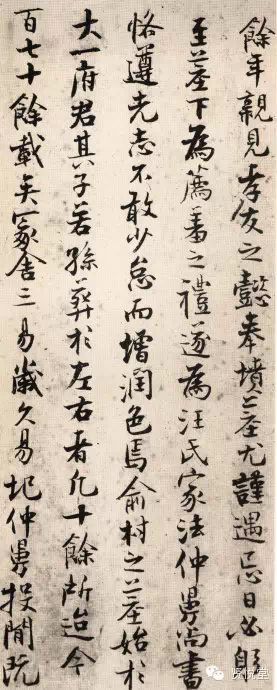 餘年親見孝友之懿奉墳墓尤謹遇忌日必躬
至墓下為薦羞之禮遂為汪氏家法仲舅尚書
恪遵先志不敢少怠而增潤色焉俞村之墓始於
大一府君其子若孫葬於左右者凡十餘所迨今
百七十餘載矣冢舍三易歲久易圮仲舅投閒既
贤悦堂